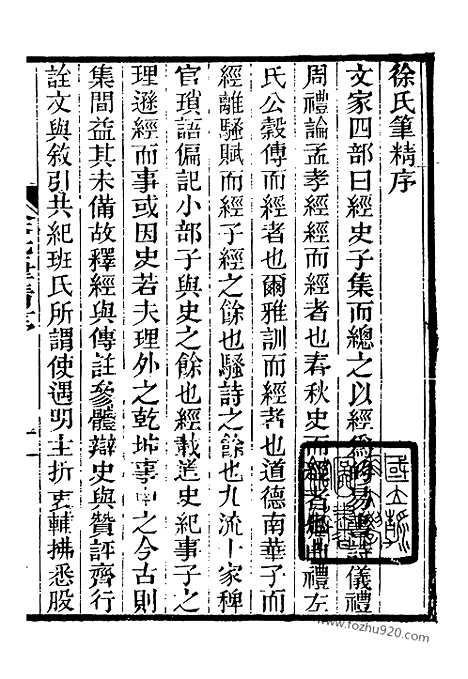 徐氏筆精序
文家四部曰經史子集而總之以經爲易書詩儀禮
周禮論孟孝經經而經者也春秋史而經者也曲禮左
氏公穀傳而經者也爾雅訓而經者也道德南華子而
經離騷賦而經子經之餘也騷詩之餘也九流十家稗
官瑣語偏記小部子與史之餘也經載道史紀事子之
理遜經而事或因史若夫理外之乾坤事中之今古則
集間益其未備故釋經與傳註參體辯史與贊評齊行
詮文與敘引共紀班氏所謂使遇明主折衷輔拂悉股
www.fozhu920.com